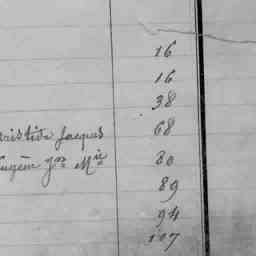 16
16
38
Aristide Jacques 68
Eugène Jn Mie 80
89
94
107